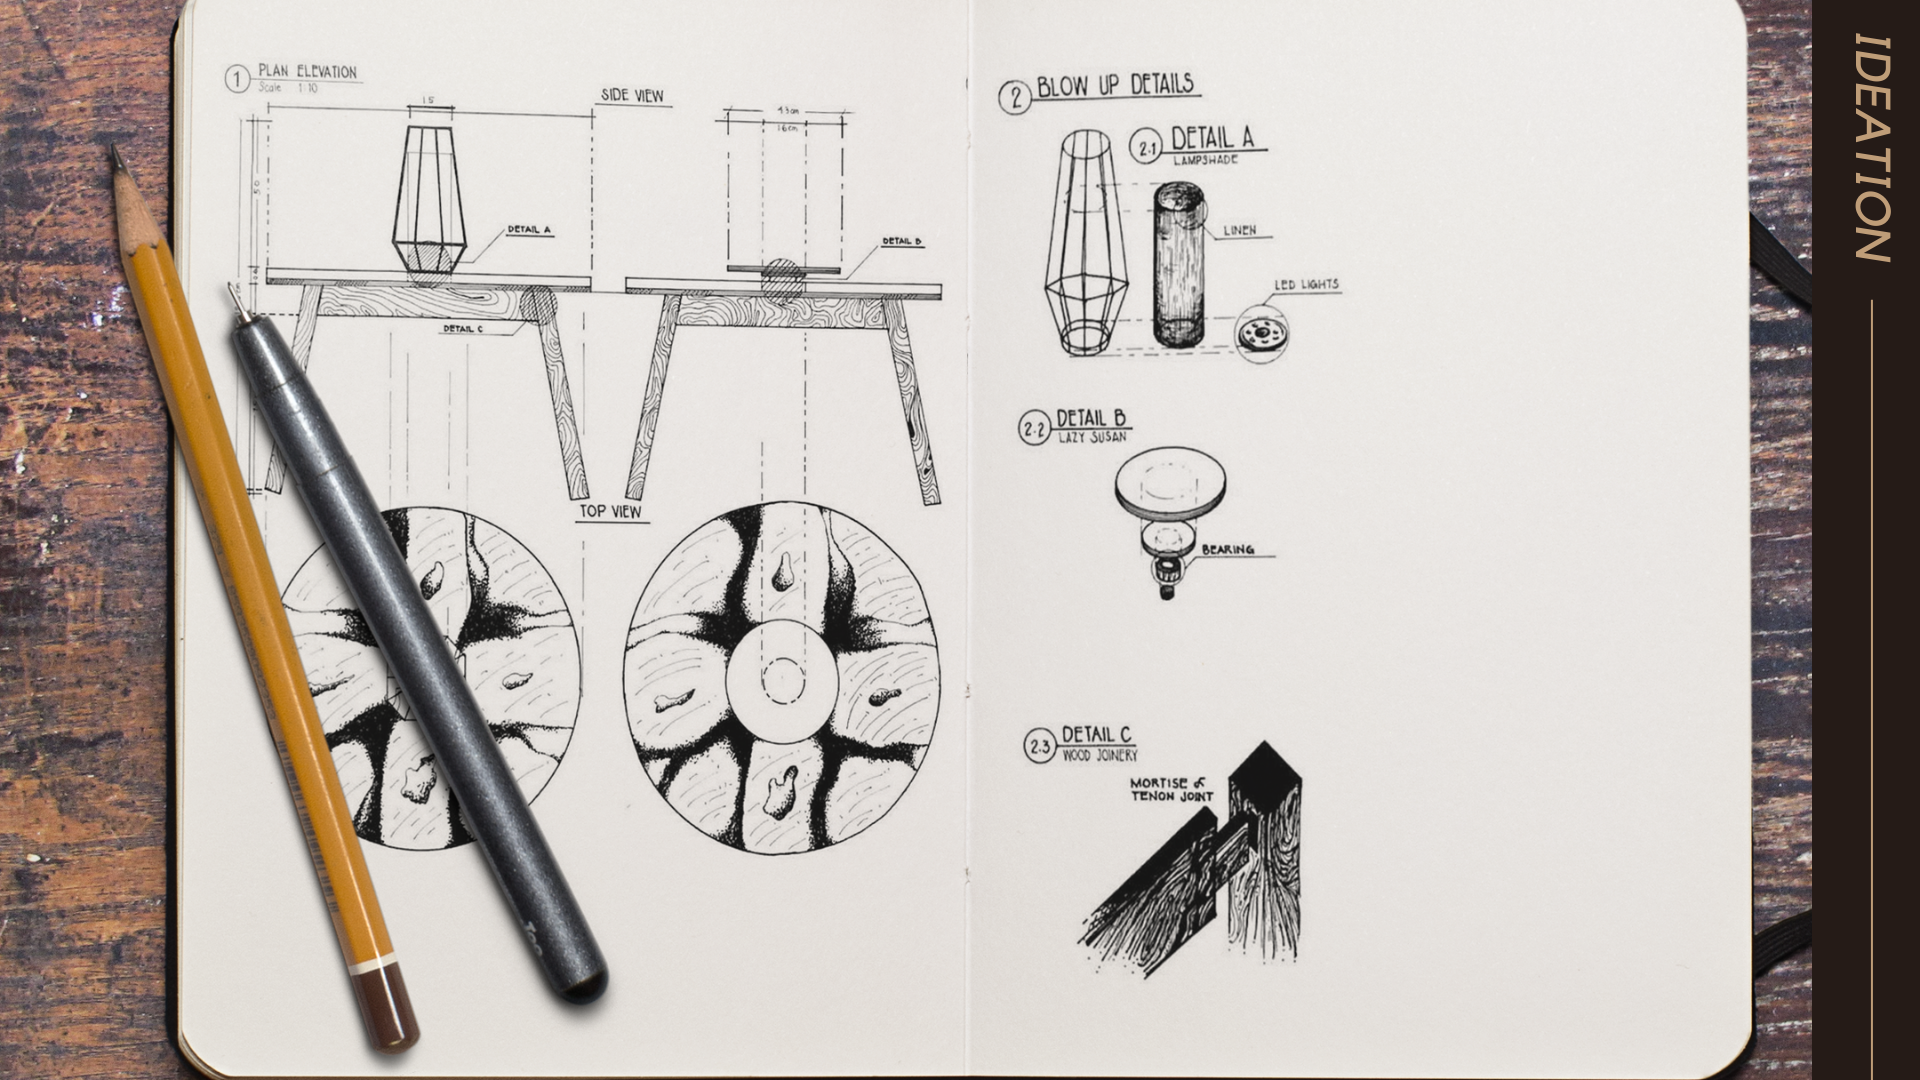 1 PLAN ELEVATION
Scale 1:10
15
SIDE VIEW
43cm
16cm
50
DETAIL A
DETAIL B
DETAIL C
TOP VIEW
2 BLOW UP DETAILS
2.1 DETAIL A
LAMPSHADE
LINEN
LED LIGHTS
2.2 DETAIL B
LAZY SUSAN
BEARING
2.3 DETAIL C
WOOD JOINERY
MORTISE &
TENON JOINT
IDEATION